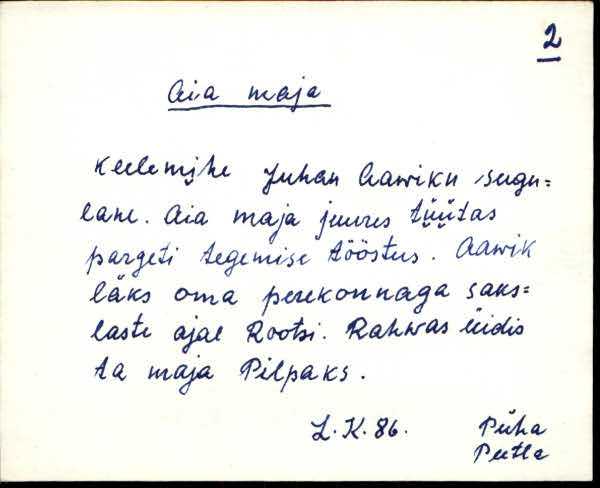 2
Aia maja
Keelemịhe Juhan Aawiku sugu=
lane. Aia maja juures tụ̈ụ̈tas
pargeti tegemise tööstus. Aawik
läks oma perekonnaga saks=
laste ajal Rootsi. Rahwas üidis
ta maja Pilpaks.
L. K. 86.
Püha
Peetla